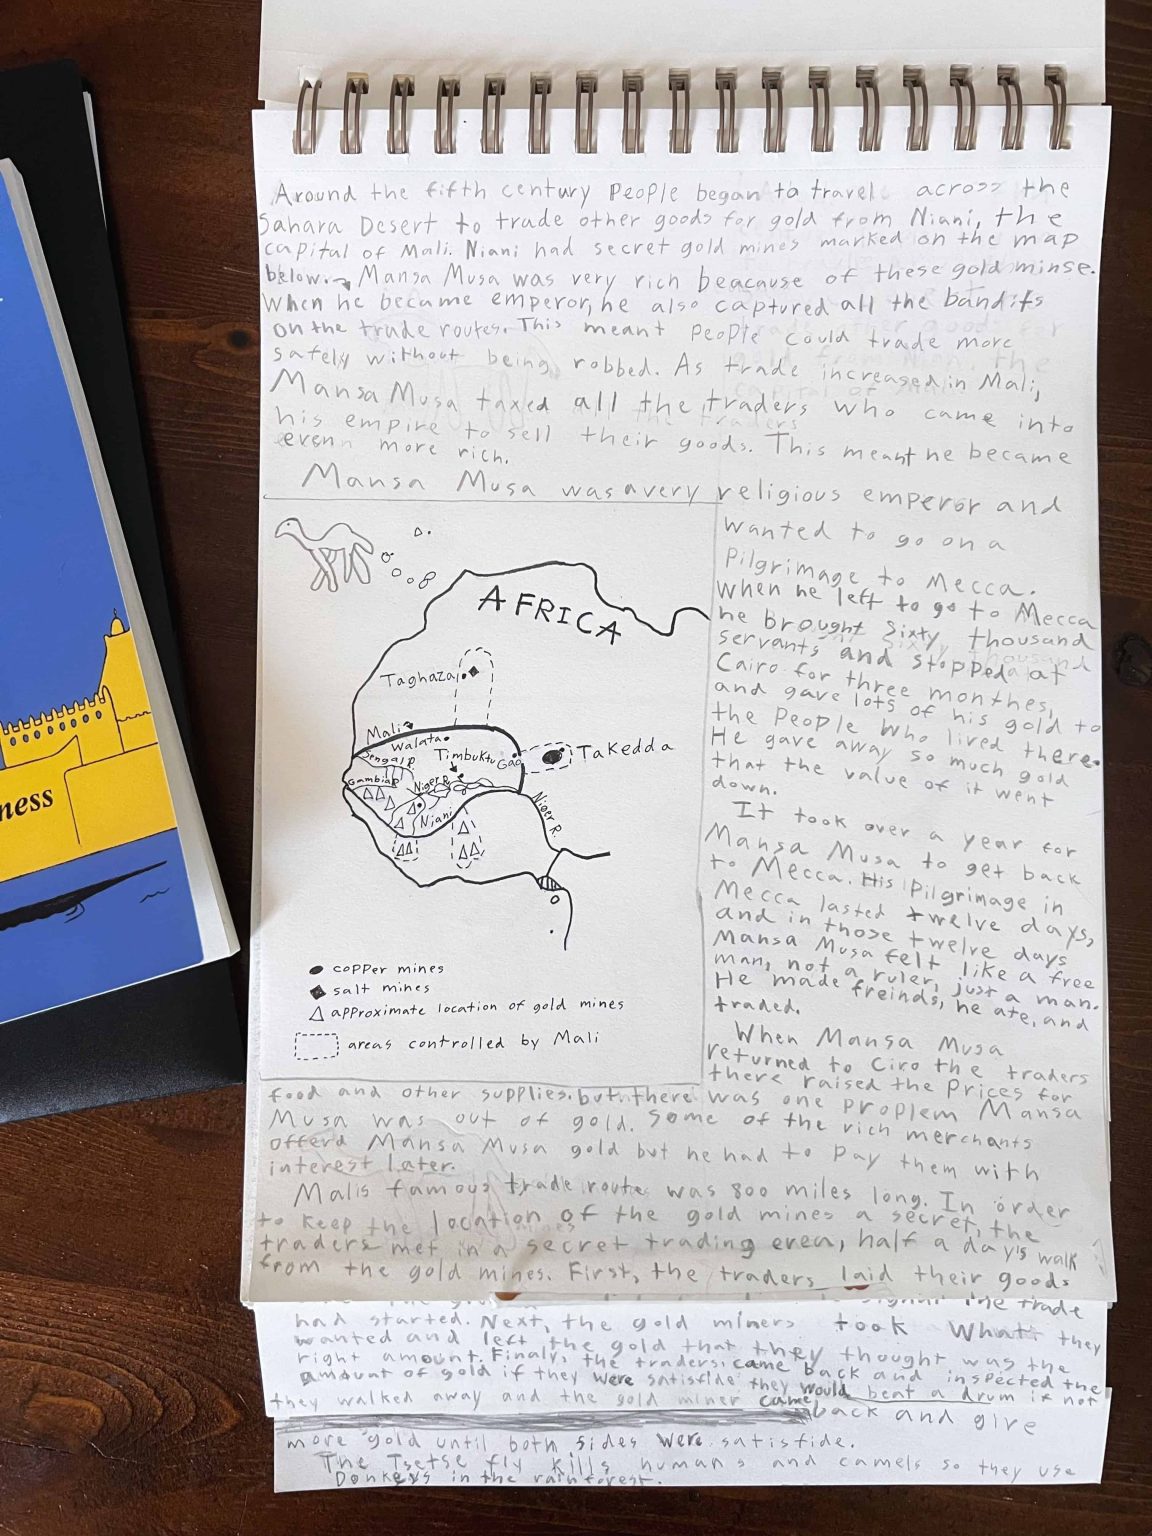 Around the fifth century People began to travel across the
Sahara Desert to trade other goods for gold from Niani, the
capital of Mali. Niani had secret gold mines marked on the map
below. Mansa Musa was very rich beacause of these gold minse.
When he became emperor, he also captured all the bandits
on the trade routes. This meant People could trade more
safely without being robbed. As trade increased in Mali,
Mansa Musa taxed all the traders who came into
his empire to sell their goods. This meant he became
even more rich.
Mansa Musa was a very religious emperor and
wanted to go on a
Pilgrimage to Mecca.
When he left to go to Mecca
he brought sixty thousand
servants and stopped at
Cairo for three monthes,
and gave lots of his gold to
the People who lived there.
He gave away so much gold
that the value of it went
down.
It took over a year for
Mansa Musa to get back
to Mecca. His Pilgrimage in
Mecca lasted twelve days,
and in those twelve days
Mansa Musa felt like a free
man, not a ruler, just a man.
He made freinds, he ate, and
traded.
When Mansa Musa
returned to Ciro the traders
there raised the Prices for
food and other supplies. but there was one problem Mansa
Musa was out of gold. Some of the rich merchants
offerd Mansa Musa gold but he had to Pay them with
interest later.
Malis famous trade route was 800 miles long. In order
to keep the location of the gold mines a secret, the
traders met in a secret trading erea, half a day's walk
from the gold mines. First, the traders laid their goods
signal the trade
had started. Next, the gold miners took What they
wanted and left the gold that they thought was the
right amount. Finaly, the traders came back and inspected the
amount of gold if they were satisfide they would beat a drum if not
they walked away and the gold miner came back and give
more gold until both sides were satisfide.
The Tsetse fly kills humans and camels so they use
Donkeys in the rainforest.
AFRICA
Taghaza
Mali
Walata
Senegal R.
Timbuktu
Gao
Takedda
Gambia R.
Niger R.
Niani
Niger R.
copper mines
salt mines
approximate location of gold mines
areas controlled by Mali
ness